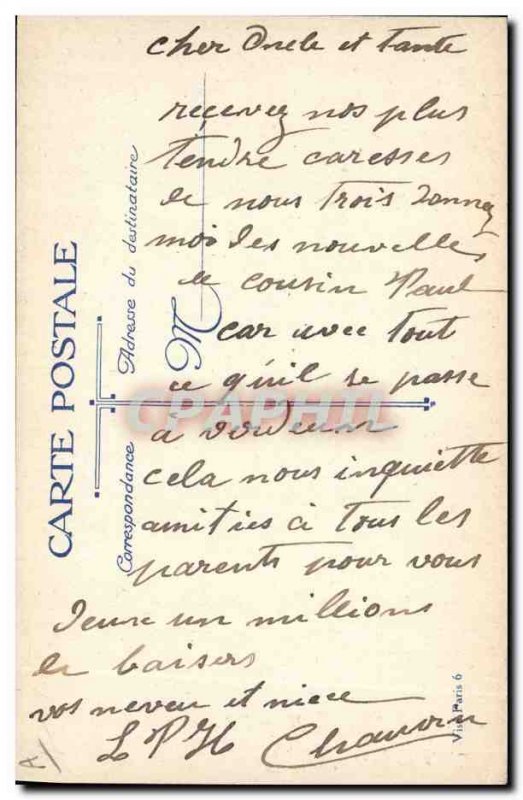 cher Oncle et tante
recevez nos plus
tendre caresses
de nous trois donnez
moi des nouvelles
de cousin Paul
car avec tout
ce qu'il se passe
à
cela nous inquiette
amitiés à tous les
parents pour vous
deux un millions
de baisers
vos neveu et niece
L P H
CARTE POSTALE
Correspondance
Adresse du destinataire
M
CPAPHIL
Paris 6